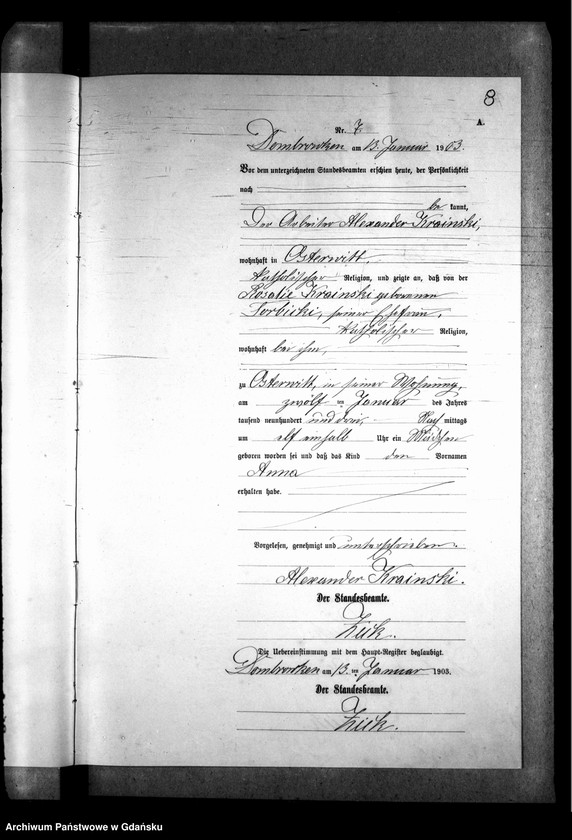 8
A.
Nr. 7.
Dombrowken am 13. Januar 1903.
Vor dem unterzeichneten Standesbeamten erschien heute, der Persönlichkeit
nach
be kannt,
Der Arbeiter Alexander Krainski,
wohnhaft in Osterwitt,
katholischer Religion, und zeigte an, daß von der
Rosalie Krainski geborenen
seiner Ehefrau,
katholischer Religion,
wohnhaft bei ihm,
zu Osterwitt, in seiner Wohnung,
am zwölf ten Januar des Jahres
tausend neunhundert und drei, Nach mittags
um elf einhalb Uhr ein Mädchen
geboren worden sei und daß das Kind den Vornamen
Anna
erhalten habe.
Vorgelesen, genehmigt und unterschrieben.
Alexander Krainski.
Der Standesbeamte.
Zük.
Die Uebereinstimmung mit dem Haupt-Register beglaubigt.
Dombrowken am 13. ten Januar 1903.
Der Standesbeamte.
Zük.
Archiwum Państwowe w Gdańsku